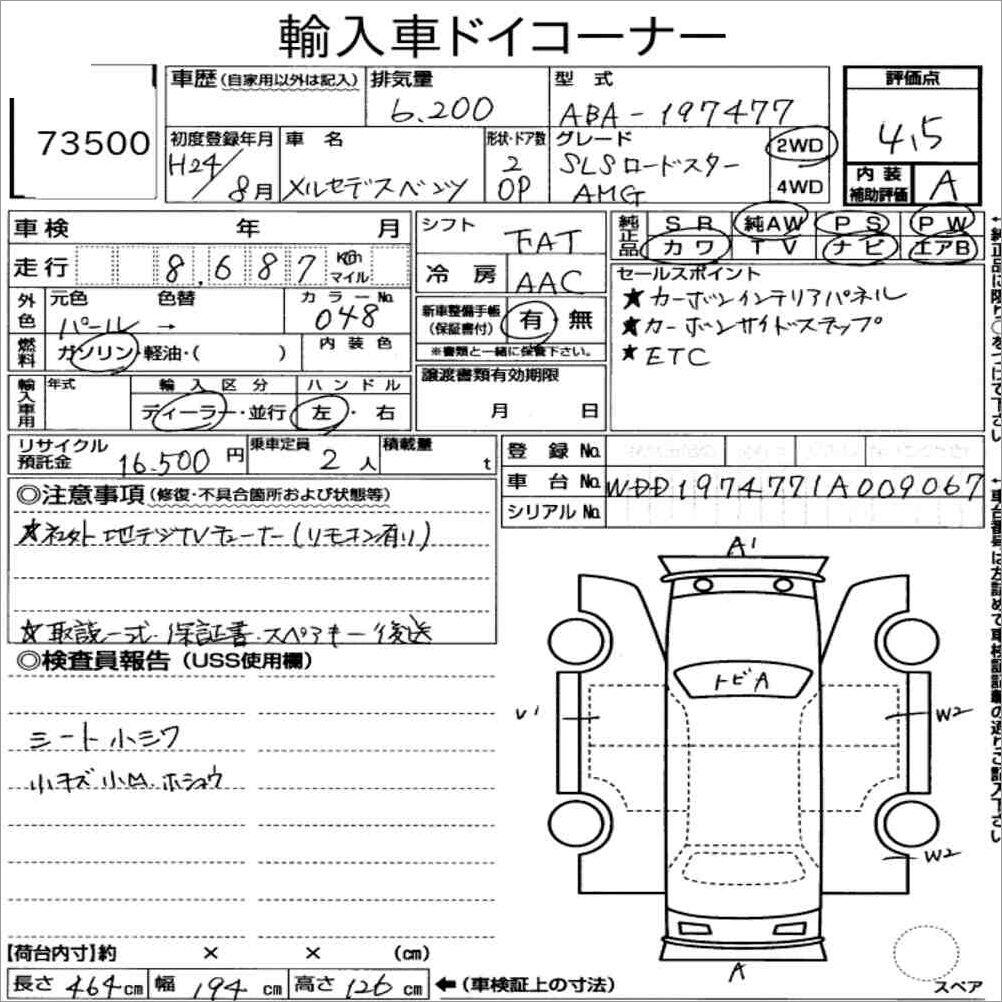 輸入車ドイコーナー
73500
車歴(自家用以外は記入)
排気量
6.200
型式
ABA-197477
評価点
4.5
初度登録年月
H24/8月
車名
メルセデスベンツ
形状・ドア数
2
OP
グレード
SLSロードスター
AMG
2WD
4WD
内装
補助評価
A
車検 年 月
走行 8,687 Km マイル
シフト
FAT
冷房
AAC
純正品
SR 純AW PS PW
カワ TV ナビ エアB
外色
元色 色替
パール →
カラーNo.
048
燃料
ガソリン・軽油・( )
内装色
新車整備手帳
(保証書付)
有 無
※書類と一緒に保管下さい。
セールスポイント
★カーボンインテリアパネル
★カーボンサイドステップ
★ETC
輸入車用
年式
輸入区分
ディーラー・並行
ハンドル
左・右
譲渡書類有効期限
月 日
リサイクル
預託金
16.500円
乗車定員
2人
積載量
t
登録No.
車台No.
WDD1974771A009067
シリアルNo.
◎注意事項(修復・不具合箇所および状態等)
★社外地デジTVチューナー(リモコン有り)
★取説一式・保証書・スペアキー後送
◎検査員報告(USS使用欄)
シート小シワ
小キズ 小凹 ホシュウ
A1
トビA
U1
W2
W2
A
スペア
【荷台内寸】約 × × (cm)
長さ464cm 幅194cm 高さ126cm ←(車検証上の寸法)
←純正品に限り○をつけて下さい
←車台番号は左詰めで車検証記載の通りご記入下さい